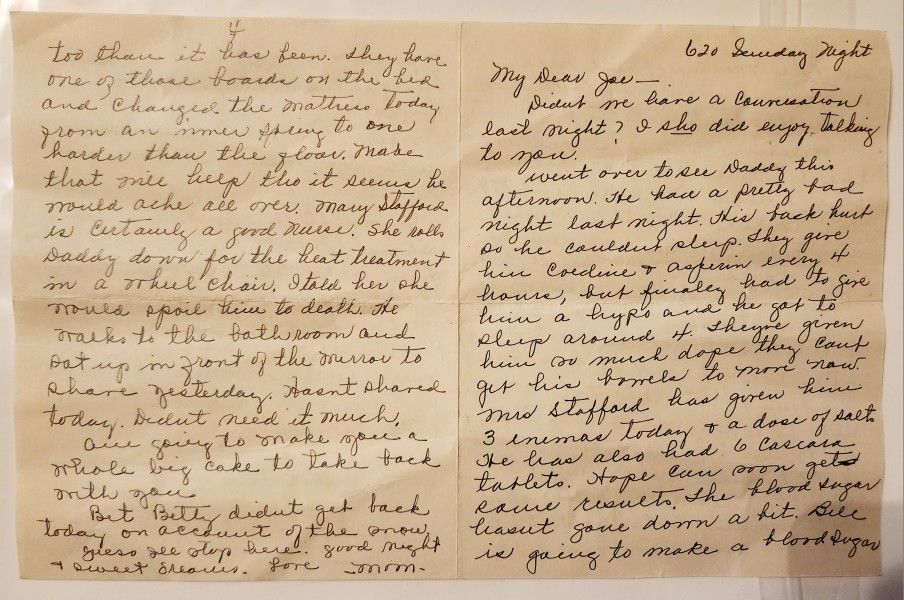 620 Sunday Night
My Dear Joe—
Didnt we have a conversation
last night? I sho did enjoy talking
to you.
Went over to see Daddy this
afternoon. He had a pretty bad
night last night. His back hurt
so he couldnt sleep. They give
him Coedine & aspirin every 4
hours, but finaley had to give
him a hypo and he got to
sleep around 4. Theyve given
him so much dope they cant
get his bowels to move now.
Mrs Stafford has given him
3 enemas today & a dose of salts
He has also had 6 Cascara
tablets. Hope can soon get
some results. The blood sugar
hasnt gone down a bit. Bill
is going to make a blood sugar
4
too than it has been. They have
one of those boards on the bed
and changed the mattress today
from an inner spring to one
harder than the floor. Make
that will help tho it seems he
would ache all over. Mary Stafford
is certainly a good nurse. She rolls
Daddy down for the heat treatment
in a wheel chair. I told her she
would spoil him to death. He
walks to the bathroom and
sat up in front of the mirror to
shave yesterday. Hasnt shaved
today. Didnt need it much.
Am going to make you a
whole big cake to take back
with you
Bet Betty didnt get back
today on account of the snow.
Guess Ill stop here. Good night
& sweet dreams. Love —Mom—